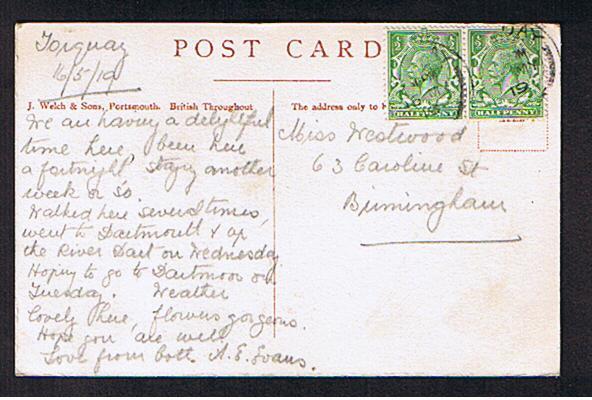 Torquay
16/5/19
POST CARD
J. Welch & Sons, Portsmouth. British Throughout
The address only to
HALFPENNY HALFPENNY
We are having a delightful
time here, been here
a fortnight staying another
week or so.
Walked here several times,
went to Dartmouth & up
the River Dart on Wednesday
Hoping to go to Dartmoor on
Tuesday. Weather
lovely here, flowers gorgeous.
Hope you are well.
Love from both. A. E. Evans.
Miss Westwood
63 Caroline St
Birmingham